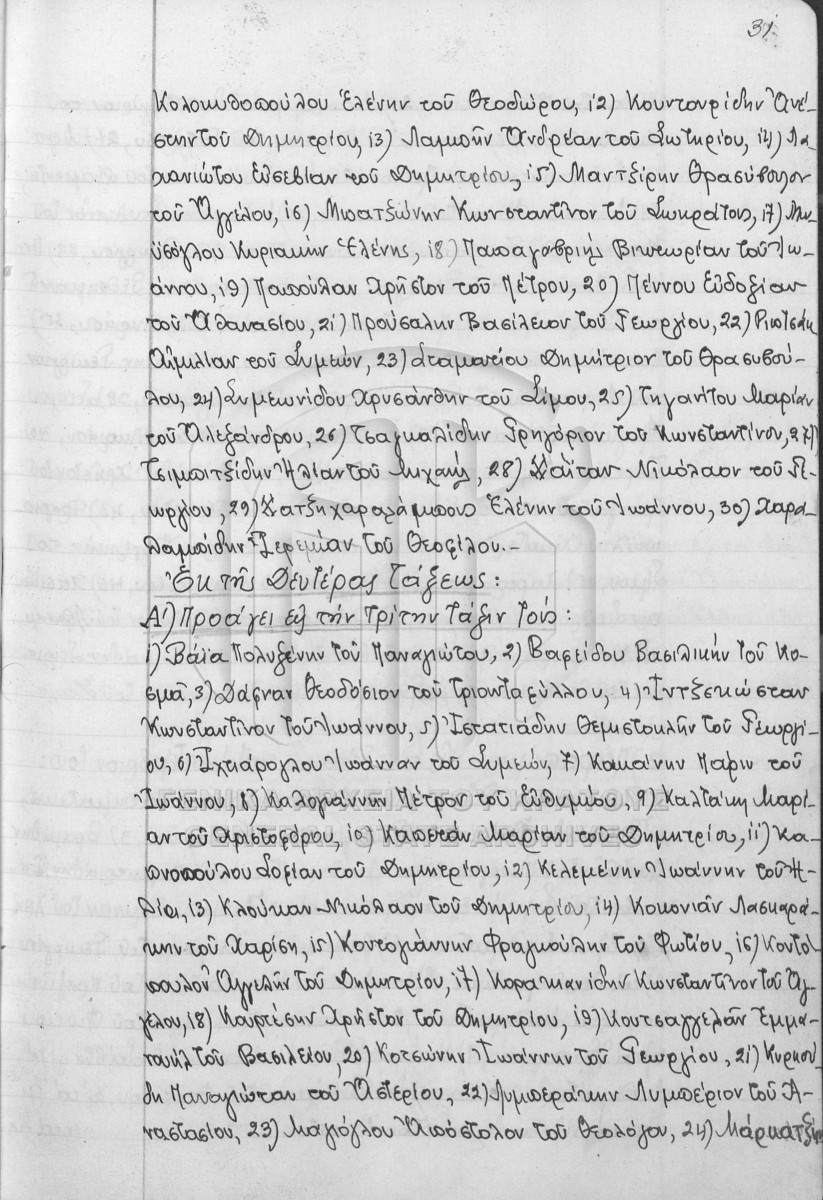 31
Κολοκυθοπούλου Ἑλένην τοῦ Θεοδώρου, 12) Κουντουρίδην Ἀνέ-
στην τοῦ Δημητρίου, 13) Λαμπῆν Ἀνδρέαν τοῦ Σωτηρίου, 14) Λα-
χανιώτου Εὐσεβίαν τοῦ Δημητρίου, 15) Μαντζίρην Θρασύβουλον
τοῦ Ἀγγέλου, 16) Μπατζώνην Κωνσταντῖνον τοῦ Σωκράτους, 17)
Κυριακὴν Ἑλένης, 18) Παπαγαβριὴλ Βικτωρίαν τοῦ Ἰω-
άννου, 19) Παπούλαν Χρῆστον τοῦ Πέτρου, 20) Πέννου Εὐδοξίαν
τοῦ Ἀθανασίου, 21) Προύσαλην Βασίλειον τοῦ Γεωργίου, 22)
Αἰμιλίαν τοῦ Συμεών, 23) Σταματίου Δημήτριον τοῦ Θρασυβού-
λου, 24) Συμεωνίδου Χρυσάνθην τοῦ Σίμου, 25) Τηγανίτου Μαρίαν
τοῦ Ἀλεξάνδρου, 26) Τσαγκαλίδην Γρηγόριον τοῦ Κωνσταντίνου, 27)
Τσιμπιτζίδην Ἠλίαν τοῦ Μιχαὴλ, 28) Χαϊταν Νικόλαον τοῦ Γε-
ωργίου, 29) Χατζηχαραλάμπους Ἑλένην τοῦ Ἰωάννου, 30) Χαρα-
λαμπίδην Ἱερεμίαν τοῦ Θεοφίλου.-
Ἐκ τῆς Δευτέρας τάξεως:
Α') Προάγει εἰς τὴν τρίτην τάξιν τοὺς:
1) Βάϊα Πολυξένην τοῦ Παναγιώτου, 2) Βαφείδου Βασιλικὴν τοῦ Κο-
σμᾶ, 3) Δάφναν Θεοδόσιον τοῦ Τριανταφύλλου, 4) Ἰντζεκώσταν
Κωνσταντῖνον τοῦ Ἰωάννου, 5) Ἰστατιάδην Θεμιστοκλῆν τοῦ Γεωργί-
ου, 6) Ἰχτιάρογλου Ἰωάνναν τοῦ Συμεών, 7) Κακάνην Πάριν τοῦ
Ἰωάννου, 8) Καλογιάννην Πέτρον τοῦ Εὐθυμίου, 9) Καλτάκη Μαρί-
αν τοῦ Χριστοφόρου, 10) Καπετάν Μαρίαν τοῦ Δημητρίου, 11) Κα-
πνοπούλου Σοφίαν τοῦ Δημητρίου, 12) Κελεμένην Ἰωάννην τοῦ Ἠ-
λία, 13) Κλούκαν Νικόλαον τοῦ Δημητρίου, 14) Κοκονιᾶν Λασκαρά-
κην τοῦ Χαρίση, 15) Κοντογιάννην Φραγκούλην τοῦ Φωτίου, 16) Κοντο-
πουλον Ἀγγελῆν τοῦ Δημητρίου, 17) Κορακιανίδην Κωνσταντῖνον τοῦ Ἀγ-
γέλου, 18) Κουρτέσην Χρῆστον τοῦ Δημητρίου, 19) Κουτσαγγελᾶν Ἐμμα-
νουὴλ τοῦ Βασιλείου, 20) Κοτσώνην Ἰωάννην τοῦ Γεωργίου, 21) Κυρκού-
δη Παναγιώταν τοῦ Ἀστερίου, 22) Λυμπεράκην Λυμπέριον τοῦ Ἀ-
ναστασίου, 23) Μαγιόγλου Ἀπόστολον τοῦ Θεολόγου, 24)
ΓΕΝΙΚΑ ΑΡΧΕΙΑ ΤΟΥ ΚΡΑΤΟΥΣ
GENERAL STATE ARCHIVES